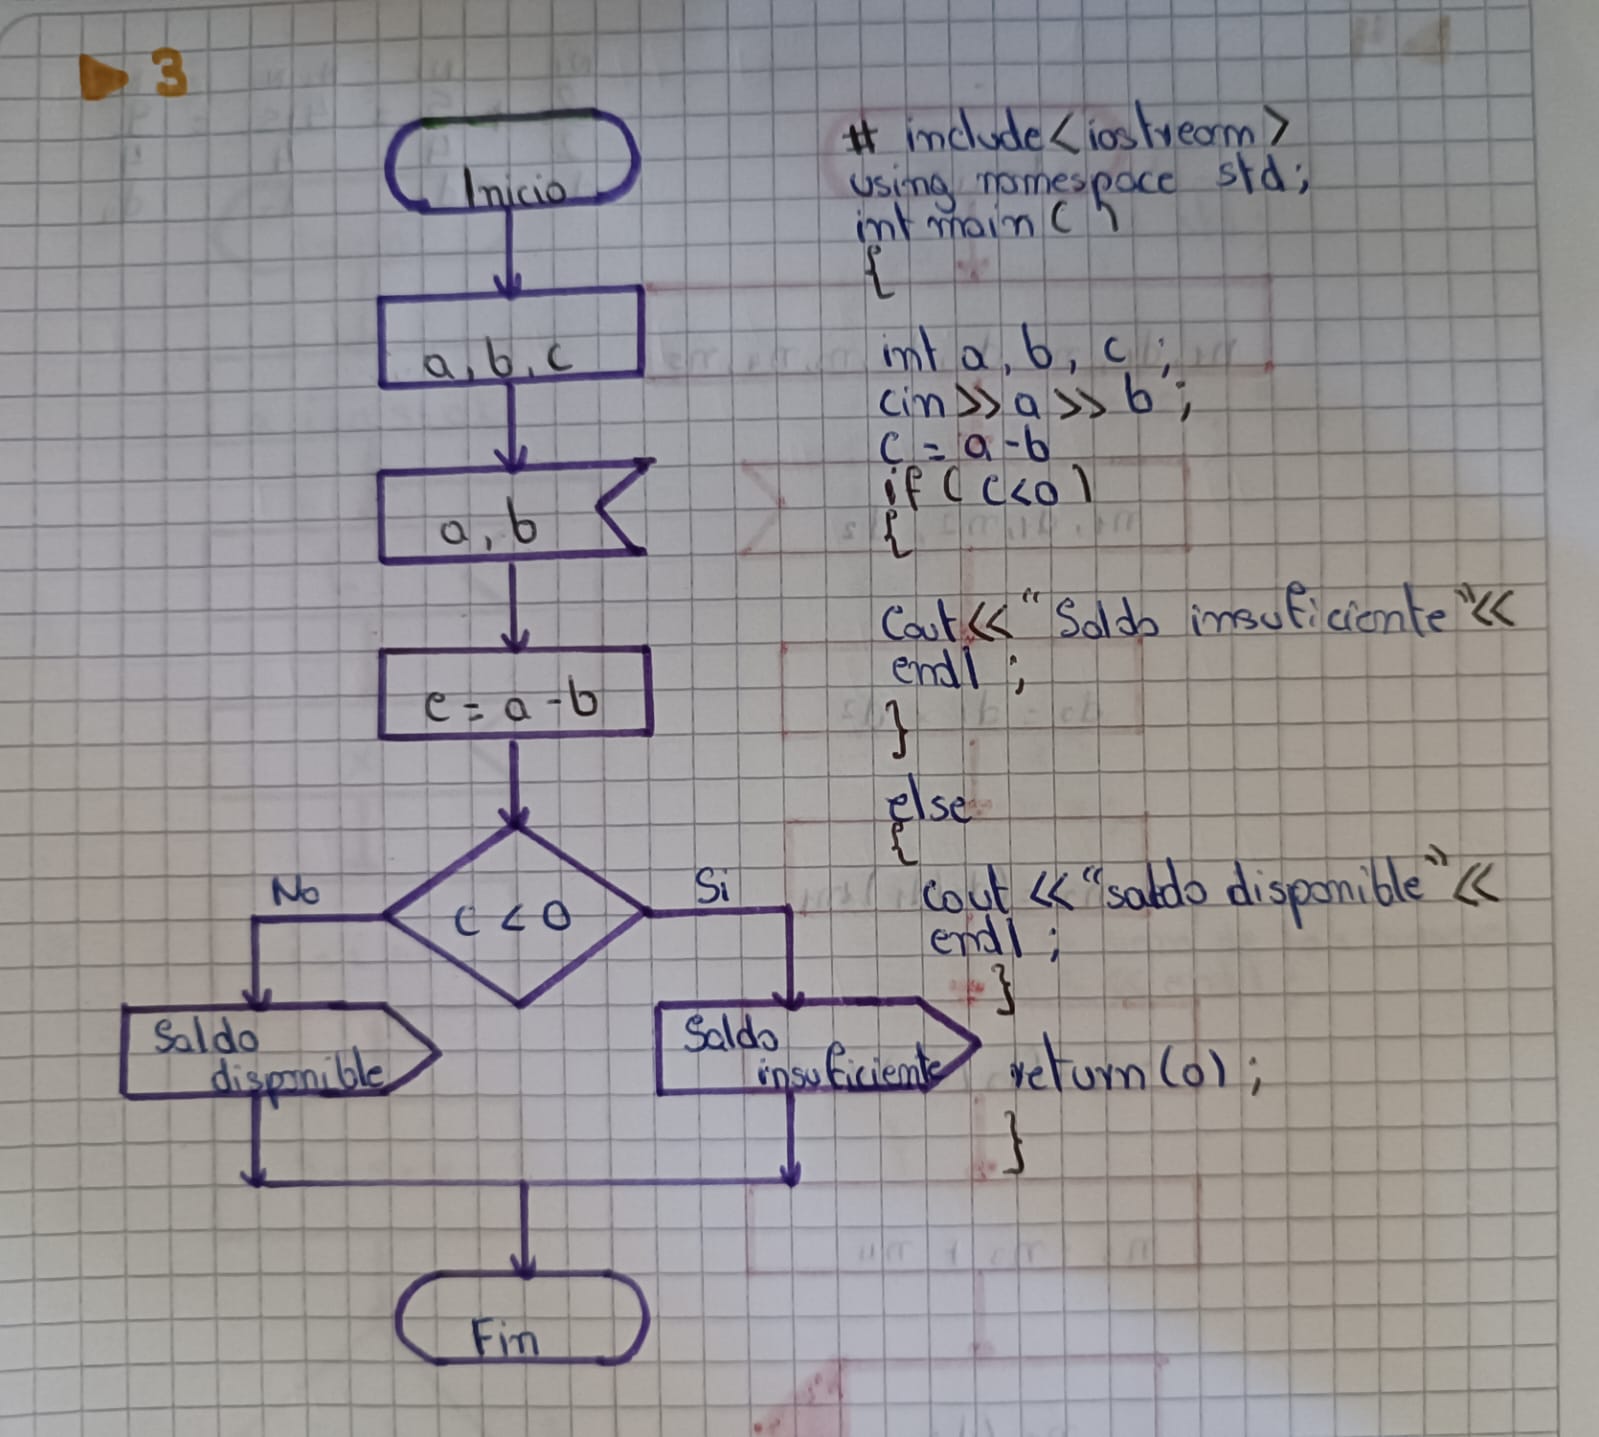 ▶ 3
Inicio
a, b, c
a, b
c = a - b
c < 0
No
Si
Saldo
disponible
Saldo
insuficiente
Fin
# include<iostream>
using namespace std;
int main ( )
{
int a, b, c ;
cin >> a >> b ;
c = a - b
if ( c<0 )
{
Cout << "Saldo insuficiente" <<
endl ;
}
else
{
cout << "saldo disponible" <<
endl ;
}
return (0) ;
}